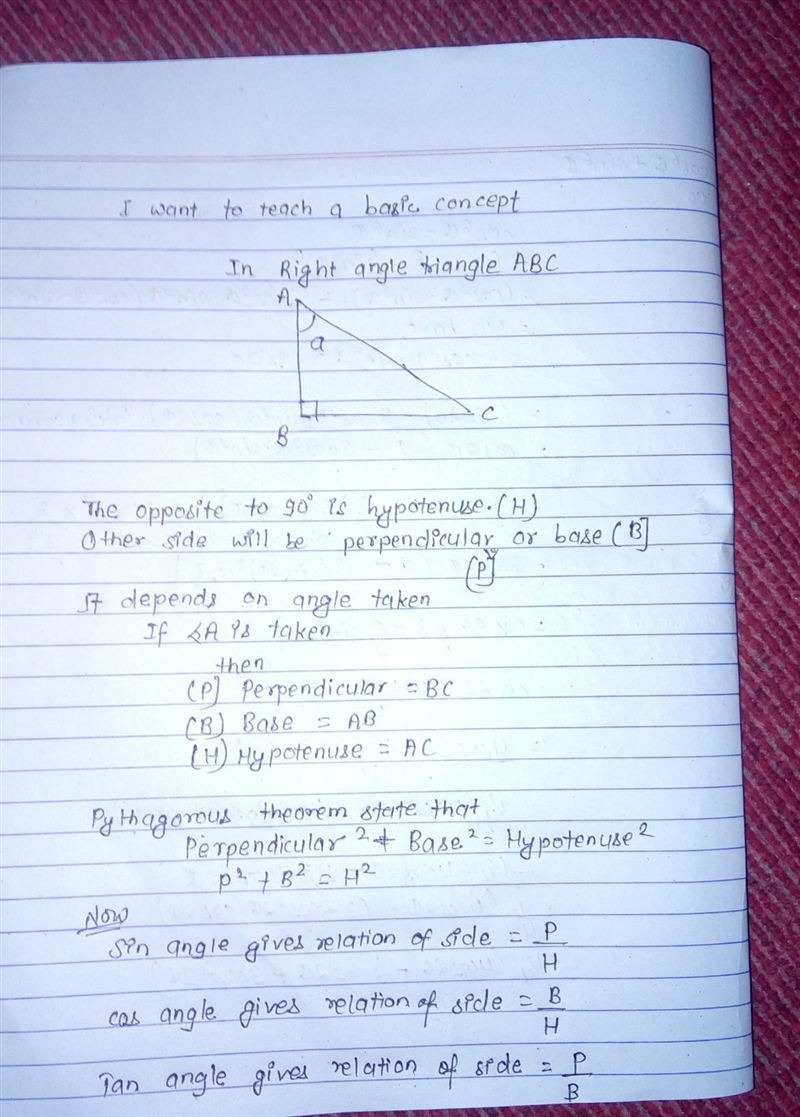 I want to teach a basic concept
In Right angle triangle ABC
A
a
B
C
The opposite to 90° is hypotenuse.(H)
Other side will be perpendicular or base (B]
(P]
It depends on angle taken
If ∠A is taken
then
(P] Perpendicular = BC
(B) Base = AB
(H) Hypotenuse = AC
Pythagorous theorem state that
Perpendicular² + Base² = Hypotenuse²
P² + B² = H²
Now
Sin angle gives relation of side = P/H
cos angle gives relation of side = B/H
Tan angle gives relation of side = P/B